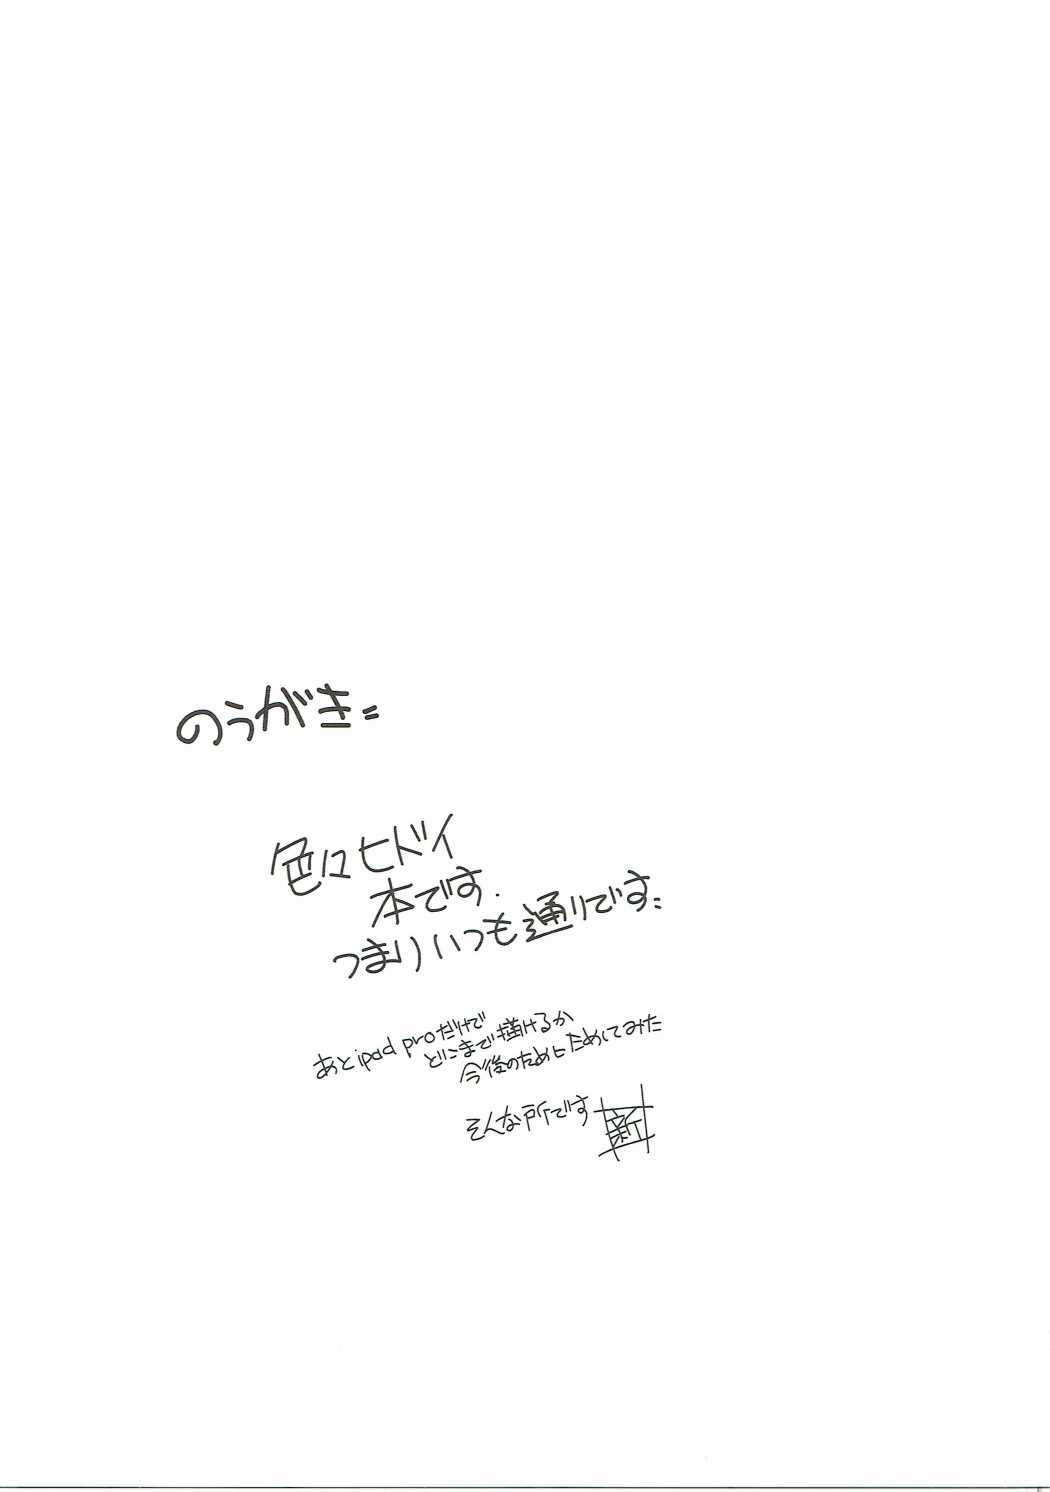 のうがき=
色々ヒドイ
本です.
つまりいつも通りです=
あとipad proだけで
どこまで描けるか
今後のためにためしてみた
そんな所です 新